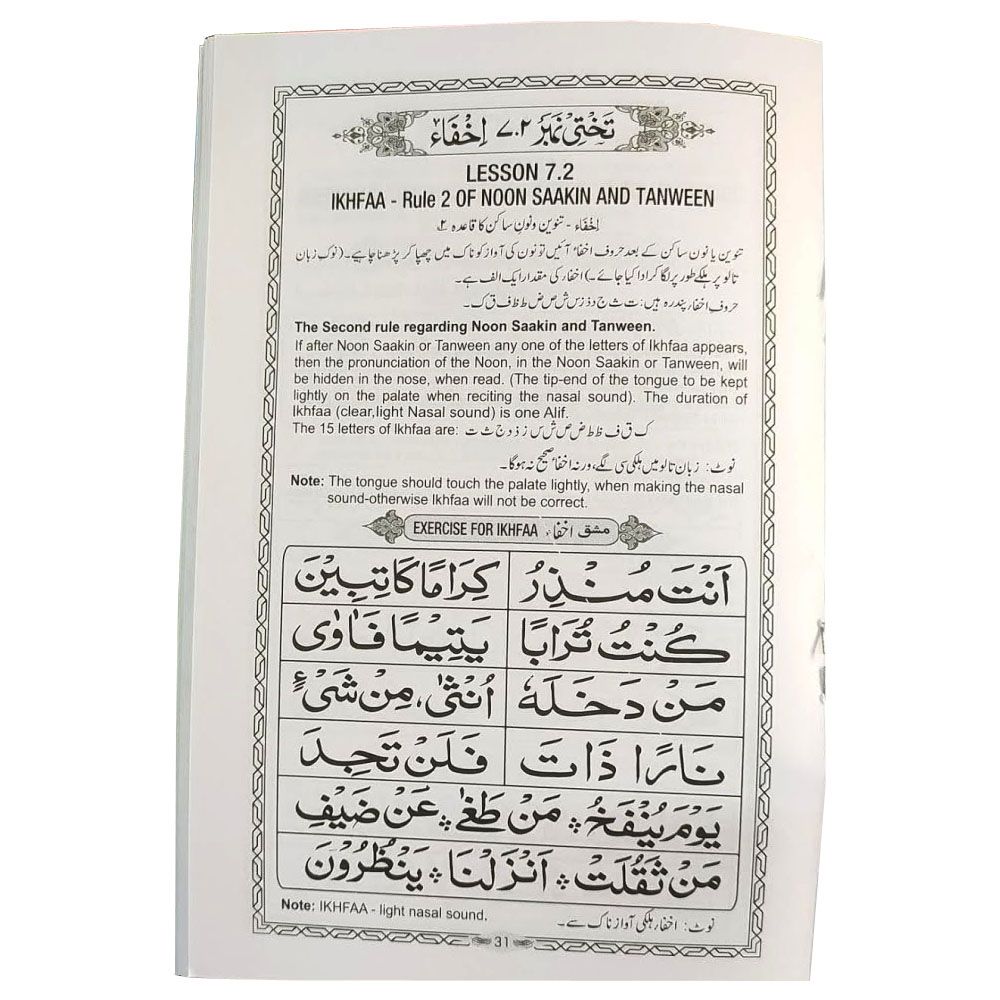 تختی نمبر ۷.۲ اِخْفَاء
LESSON 7.2
IKHFAA - Rule 2 OF NOON SAAKIN AND TANWEEN
اِخْفَاء - تنوین و نون ساکن کا قاعدہ ۲
تنوین یا نون ساکن کے بعد حروف اخفاء آئیں تو نون کی آواز کو ناک میں چھپا کر پڑھنا چاہیے۔ (نوک زبان
تالو پر ہلکے طور پر لگا کر ادا کیا جائے۔) اخفاء کی مقدار ایک الف ہے۔
حروف اخفاء پندرہ ہیں: ت ث ج د ذ ز س ش ص ض ط ظ ف ق ک۔
The Second rule regarding Noon Saakin and Tanween.
If after Noon Saakin or Tanween any one of the letters of Ikhfaa appears,
then the pronunciation of the Noon, in the Noon Saakin or Tanween, will
be hidden in the nose, when read. (The tip-end of the tongue to be kept
lightly on the palate when reciting the nasal sound). The duration of
Ikhfaa (clear,light Nasal sound) is one Alif.
The 15 letters of Ikhfaa are: ک ق ف ظ ط ض ص ش س ز ذ د ج ث ت
نوٹ: زبان تالو میں ہلکی سی لگے، ورنہ اخفاء صحیح نہ ہوگا۔
Note: The tongue should touch the palate lightly, when making the nasal
sound-otherwise Ikhfaa will not be correct.
EXERCISE FOR IKHFAA مشق اخفاء
اَنْتَ مُنْذِرُ كِرَامًا كَاتِبِيْنَ
كُنْتُ تُرَابًا يَتِيْمًا فَاٰوٰى
مَنْ دَخَلَهٗ اُنْثٰى، مِنْ شَىْءٍ
نَارًا ذَاتَ فَلَنْ تَجِدَ
يَوْمَ يُنْفَخُ ؞ مَنْ طَغٰى ؞ عَنْ ضَيْفِ
مَنْ ثَقُلَتْ ؞ اَنْزَلْنَا ؞ يَنْظُرُوْنَ
Note: IKHFAA - light nasal sound. نوٹ: اخفاء ہلکی آواز ناک سے۔
31